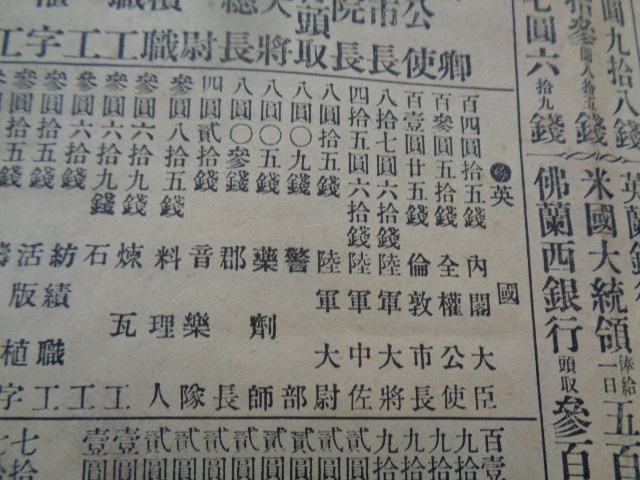 圓九拾八錢
拾參圓八拾五錢
七圓六拾九錢
米國大統領俸給一日五百
佛蘭西銀行頭取參百
卿
公使
市長
院長
頭取
大將
總長
尉
職
職工
工
字
工
英國
百四圓拾五錢內閣大臣
百參圓五拾錢全權公使
百壹圓廿五錢倫敦市長
八拾七圓六拾錢陸軍大將
四拾五圓六拾錢陸軍中佐
八圓拾五錢陸軍大尉
八圓〇九錢警部
八圓〇五錢藥劑師
八圓〇參錢郡長
四圓貳拾錢音樂隊
參圓八拾五錢料理人
參圓六拾九錢煉瓦工
參圓六拾九錢石工
參圓六拾錢紡績職工
參圓拾五錢活版植字
百壹
九拾
九拾
九拾
貳圓
貳圓
貳圓
貳圓
貳圓
貳圓
貳圓
壹圓
壹圓
七拾